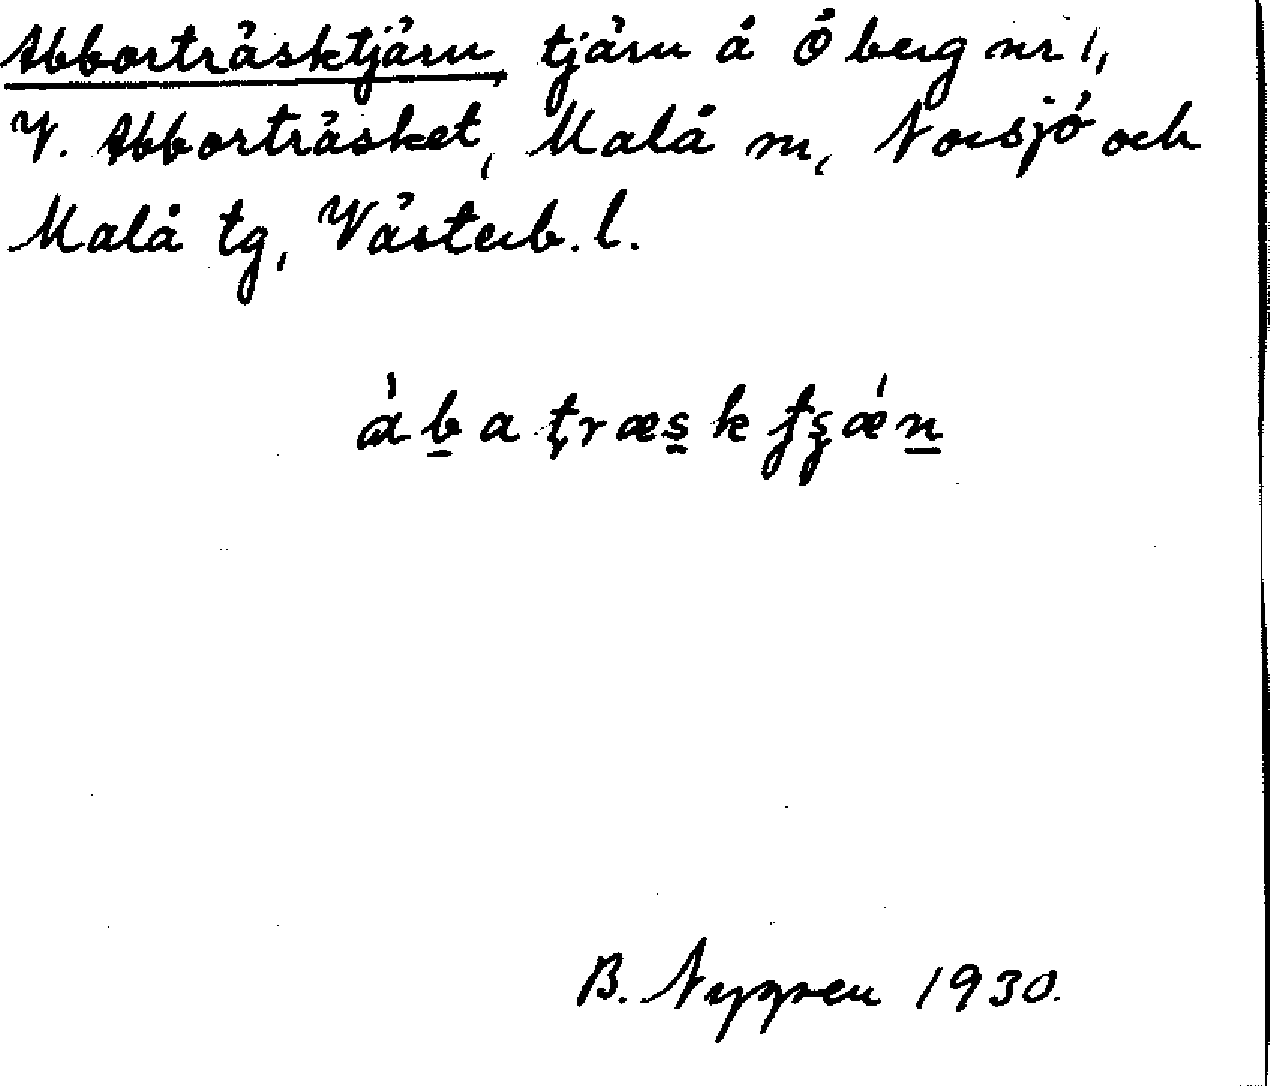 Abborträsktjärn, tjärn å Öberg nr 1,
V. Abborträsket, Malå sn, Norsjö och
Malå tg, Västerb. l.
àb̲atræs̲k tʂǽn̲
B. Nygren 1930.